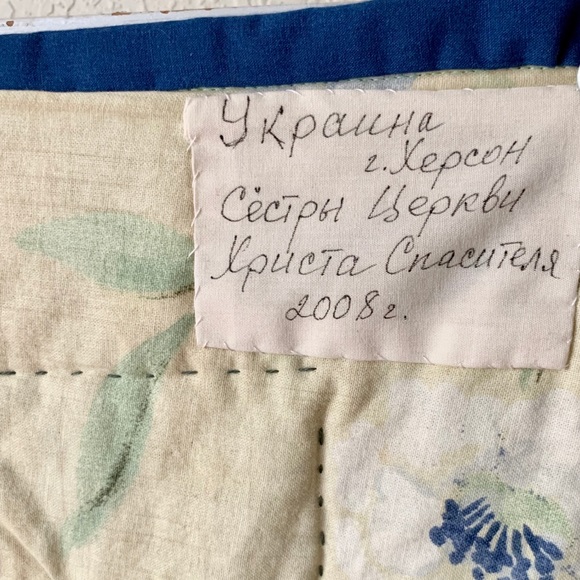 Украина
г. Херсон
Сёстры Церкви
Христа Спасителя
2008 г.